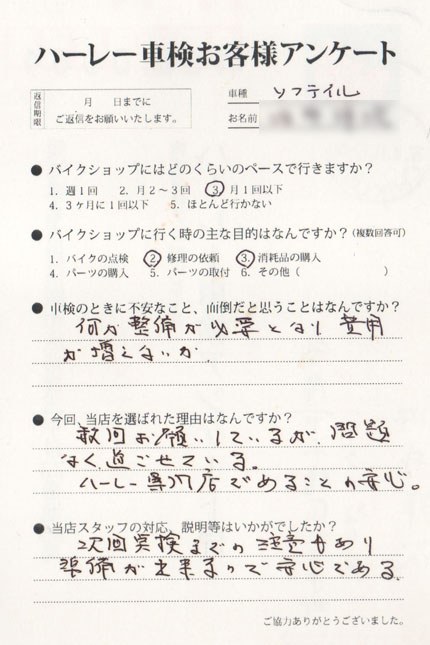 ハーレー車検お客様アンケート
返信期限
月　日までに
ご返信をお願いいたします。
車種 ソフテイル
お名前
● バイクショップにはどのくらいのペースで行きますか？
1. 週1回　2. 月2～3回　3. 月1回以下
4. 3ヶ月に1回以下　5. ほとんど行かない
● バイクショップに行く時の主な目的はなんですか？(複数回答可)
1. バイクの点検　2. 修理の依頼　3. 消耗品の購入
4. パーツの購入　5. パーツの取付　6. その他（　　　　　）
● 車検のときに不安なこと、面倒だと思うことはなんですか？
何か整備が必要となり費用
が増えないか
● 今回、当店を選ばれた理由はなんですか？
数回お願いしているが、問題
なく過ごせている。
ハーレー専門店であることの安心。
● 当店スタッフの対応、説明等はいかがでしたか？
次回車検までの注意もあり
準備が出来るので安心である。
ご協力ありがとうございました。